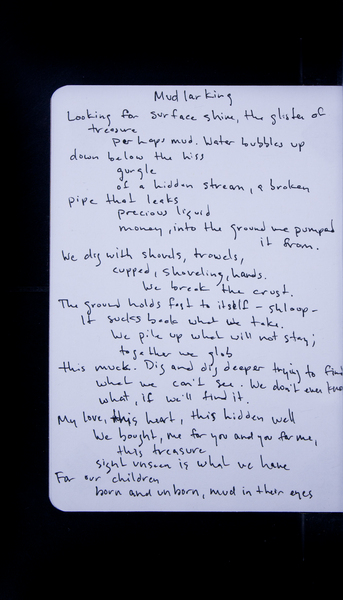 Mudlarking
Looking for surface shine, the glister of
treasure
perhaps mud. Water bubbles up
down below the hiss
gurgle
of a hidden stream, a broken
pipe that leaks
precious liquid
money, into the ground we pumped
it from.
We dig with shovels, trowels,
cupped, shoveling, hands.
We break the crust.
The ground holds fast to itself - shloup -
It sucks back what we take.
We pile up what will not stay;
together we glob
this muck. Dig and dig deeper trying to find
what we can't see. We don't even know
what, if we'll find it.
My love, this heart, this hidden well
We bought, me for you and you for me,
this treasure
sight unseen is what we have
For our children
born and unborn, mud in their eyes